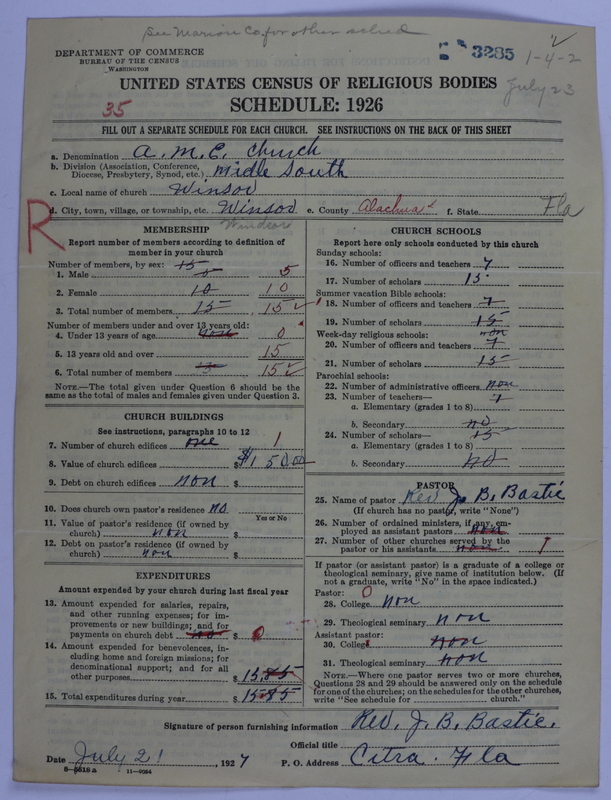 See Marion Co. for other sched
DEPARTMENT OF COMMERCE
BUREAU OF THE CENSUS
WASHINGTON
3285 1-4-2
UNITED STATES CENSUS OF RELIGIOUS BODIES
July 23
SCHEDULE: 1926
35
FILL OUT A SEPARATE SCHEDULE FOR EACH CHURCH. SEE INSTRUCTIONS ON THE BACK OF THIS SHEET
a. Denomination A. M. E. Church
b. Division (Association, Conference, Diocese, Presbytery, Synod, etc.) Midle South
c. Local name of church Winsor
d. City, town, village, or township, etc. Winsor e. County Alachua f. State Fla
R
MEMBERSHIP
Report number of members according to definition of
member in your church
Number of members, by sex: 15
1. Male 5 5
2. Female 10 10
3. Total number of members. 15 15
Number of members under and over 13 years old:
4. Under 13 years of age 0
5. 13 years old and over 15
6. Total number of members 15 15
NOTE.—The total given under Question 6 should be
same as the total of males and females given under Question 3.
CHURCH BUILDINGS
See instructions, paragraphs 10 to 12
7. Number of church edifices one 1
8. Value of church edifices $150.00
9. Debt on church edifices non $
10. Does church own pastor's residence no
Yes or No
11. Value of pastor's residence (if owned by
church) non $
12. Debt on pastor's residence (if owned by
church) non $
EXPENDITURES
Amount expended by your church during last fiscal year
13. Amount expended for salaries, repairs,
and other running expenses; for im-
provements or new buildings; and for
payments on church debt no $ 0
14. Amount expended for benevolences,
including home and foreign missions; for
denominational support; and for all
other purposes $ 15.85
15. Total expenditures during year $ 15.85
CHURCH SCHOOLS
Report here only schools conducted by this church
Sunday schools:
16. Number of officers and teachers 7
17. Number of scholars 15
Summer vacation Bible schools:
18. Number of officers and teachers 7
19. Number of scholars 15
Week-day religious schools: non
20. Number of officers and teachers 7
21. Number of scholars 15
Parochial schools:
22. Number of administrative officers non
23. Number of teachers—
a. Elementary (grades 1 to 8)
b. Secondary no
24. Number of scholars— 15
a. Elementary (grades 1 to 8)
b. Secondary no
PASTOR
25. Name of pastor Rev J. B. Bastie
(If church has no pastor, write "None")
26. Number of ordained ministers, if any, em-
ployed as assistant pastors non
27. Number of other churches served by the
pastor or his assistants non 1
If pastor (or assistant pastor) is a graduate of a college or
theological seminary, give name of institution below. (If
not a graduate, write "No" in the space indicated.)
Pastor: 0
28. College non
29. Theological seminary non
Assistant pastor:
30. College non
31. Theological seminary non
NOTE.—Where one pastor serves two or more churches,
Questions 28 and 29 should be answered only on the schedule
for one of the churches; on the schedules for the other churches,
write "See schedule for church."
Signature of person furnishing information Rev. J. B. Bastie.
Official title
Date July 21, 1927 P. O. Address Citra. Fla
11—9084